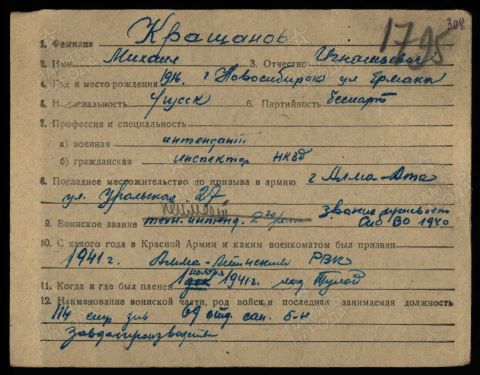 1795 308
1. Фамилия Кращанов
2. Имя Михаил 3. Отчество Игнатьевич
4. Год и место рождения 1916. г Новосибирск ул Ермака
5. Национальность русск 6. Партийность беспарт
7. Профессия и специальность
а) военная интендант
б) гражданская инспектор НКВД
8. Последнее местожительство до призыва в армию г Алма-Ата
ул. Уральская 27
9. Воинское звание техн. интенд. 2го ранг звание присвоено
СибВО 1940
10. С какого года в Красной Армии и каким военкоматом был призван
1941 г. Алма-Атинским РВК
11. Когда и где был пленен 1 ноября 1941 г. под Тулой
12. Наименование воинской части, род войск и последняя занимаемая должность
114 стр див 69 отд. сан. б-н
Завделопроизводств